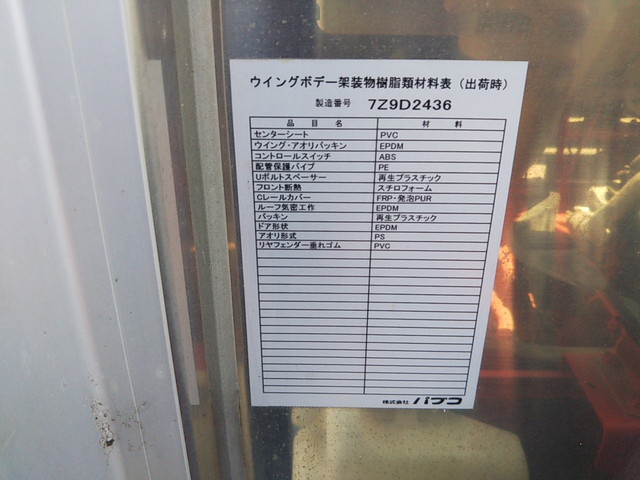 ウイングボデー架装物樹脂類材料表（出荷時）
製造番号 7Z9D2436
品目名 材料
センターシート PVC
ウイング・アオリパッキン EPDM
コントロールスイッチ ABS
配管保護パイプ PE
Uボルトスペーサー 再生プラスチック
フロント断熱 スチロフォーム
Cレールカバー FRP・発泡PUR
ルーフ気密工作 EPDM
パッキン 再生プラスチック
ドア形状 EPDM
アオリ形式 PS
リヤフェンダー垂れゴム PVC
株式会社 パブコ